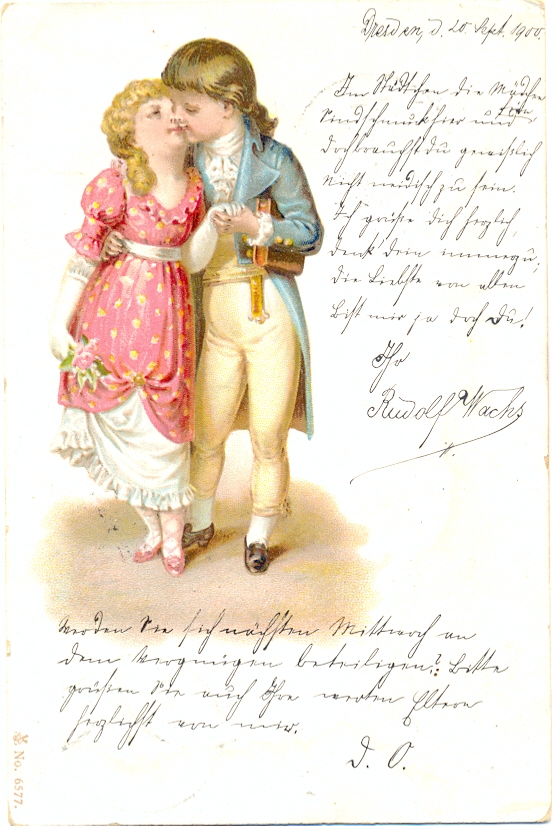 Dresden, d. 20. Sept. 1900.
Im Städtchen die Mädchen
sind schmuck hier und fein
doch brauchst du gewißlich
nicht neidisch zu sein.
Ich grüße dich herzlich,
denk' dein immerzu,
die Liebste von allen
bist mir ja doch du!
Ihr
Rudolf Wachs
Werden Sie sich nächsten Mittwoch an
dem Vergnügen beteiligen? Bitte
grüßen Sie auch Ihre werten Eltern
herzlichst von mir.
D. O.
No. 6577.